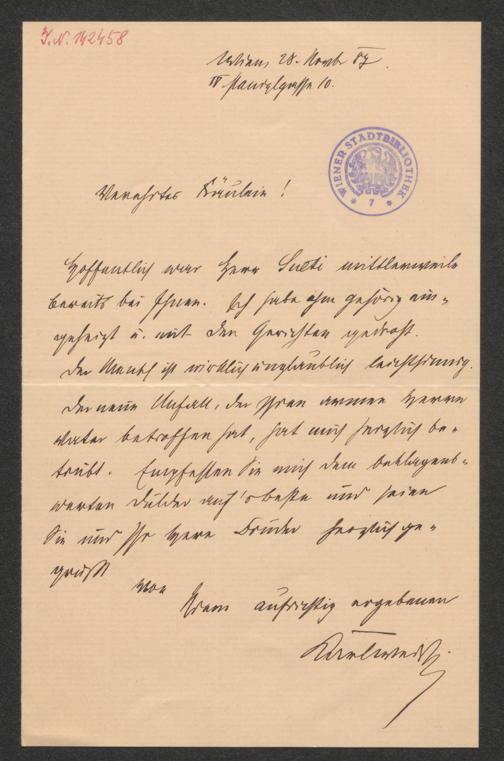 J.N. 142458
Wien, 28. Novb 87.
IV 10.
WIENER STADTBIBLIOTHEK
* 7 *
Verehrtes Fräulein!
Hoffentlich war Herr mittlerweile
bereits bei Ihnen. Ich habe ihm gehörig ein-
geheizt u. mit den Gerichten gedroht.
Der Mensch ist wirklich unglaublich leichtsinnig.
Der neue Unfall, der Ihren armen Herrn
Vater betroffen hat, hat mich herzlich be-
trübt. Empfehlen Sie mich dem beklagens-
werten Dulder auf's beste und seien
Sie und Ihr Herr Bruder herzlich ge-
grüßt
von
Ihrem aufrichtig ergebenen